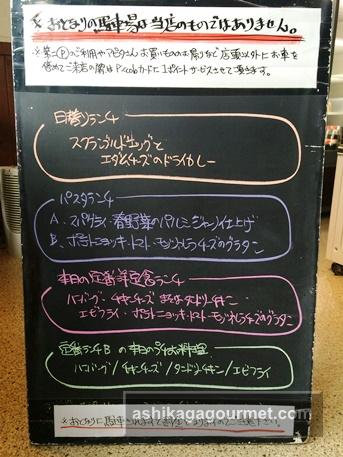 ※おとなりの駐車場は当店のものではありません。
※第二Ⓟのご利用やアピタさんお買いものお帰りなど店東以外にお車を
日替りランチ
スクランブルドエッグと
エダとチーズのドライカレー
パスタランチ
A. スパゲティ・春野菜のパルミジャーノ仕上げ
B. ポテトニョッキ・トマト・モッツァレラチーズのグラタン
本日の定番洋定食ランチ
ハンバーグ・チキンチーズ またはタンドリーチキン
エビフライ・ポテトニョッキ・トマト・モッツァレラチーズのグラタン
定番ランチB の本日のお料理
ハンバーグ/チキンチーズ/タンドリーチキン/エビフライ
※おとなりに駐車されますと
ashikagagourmet.com